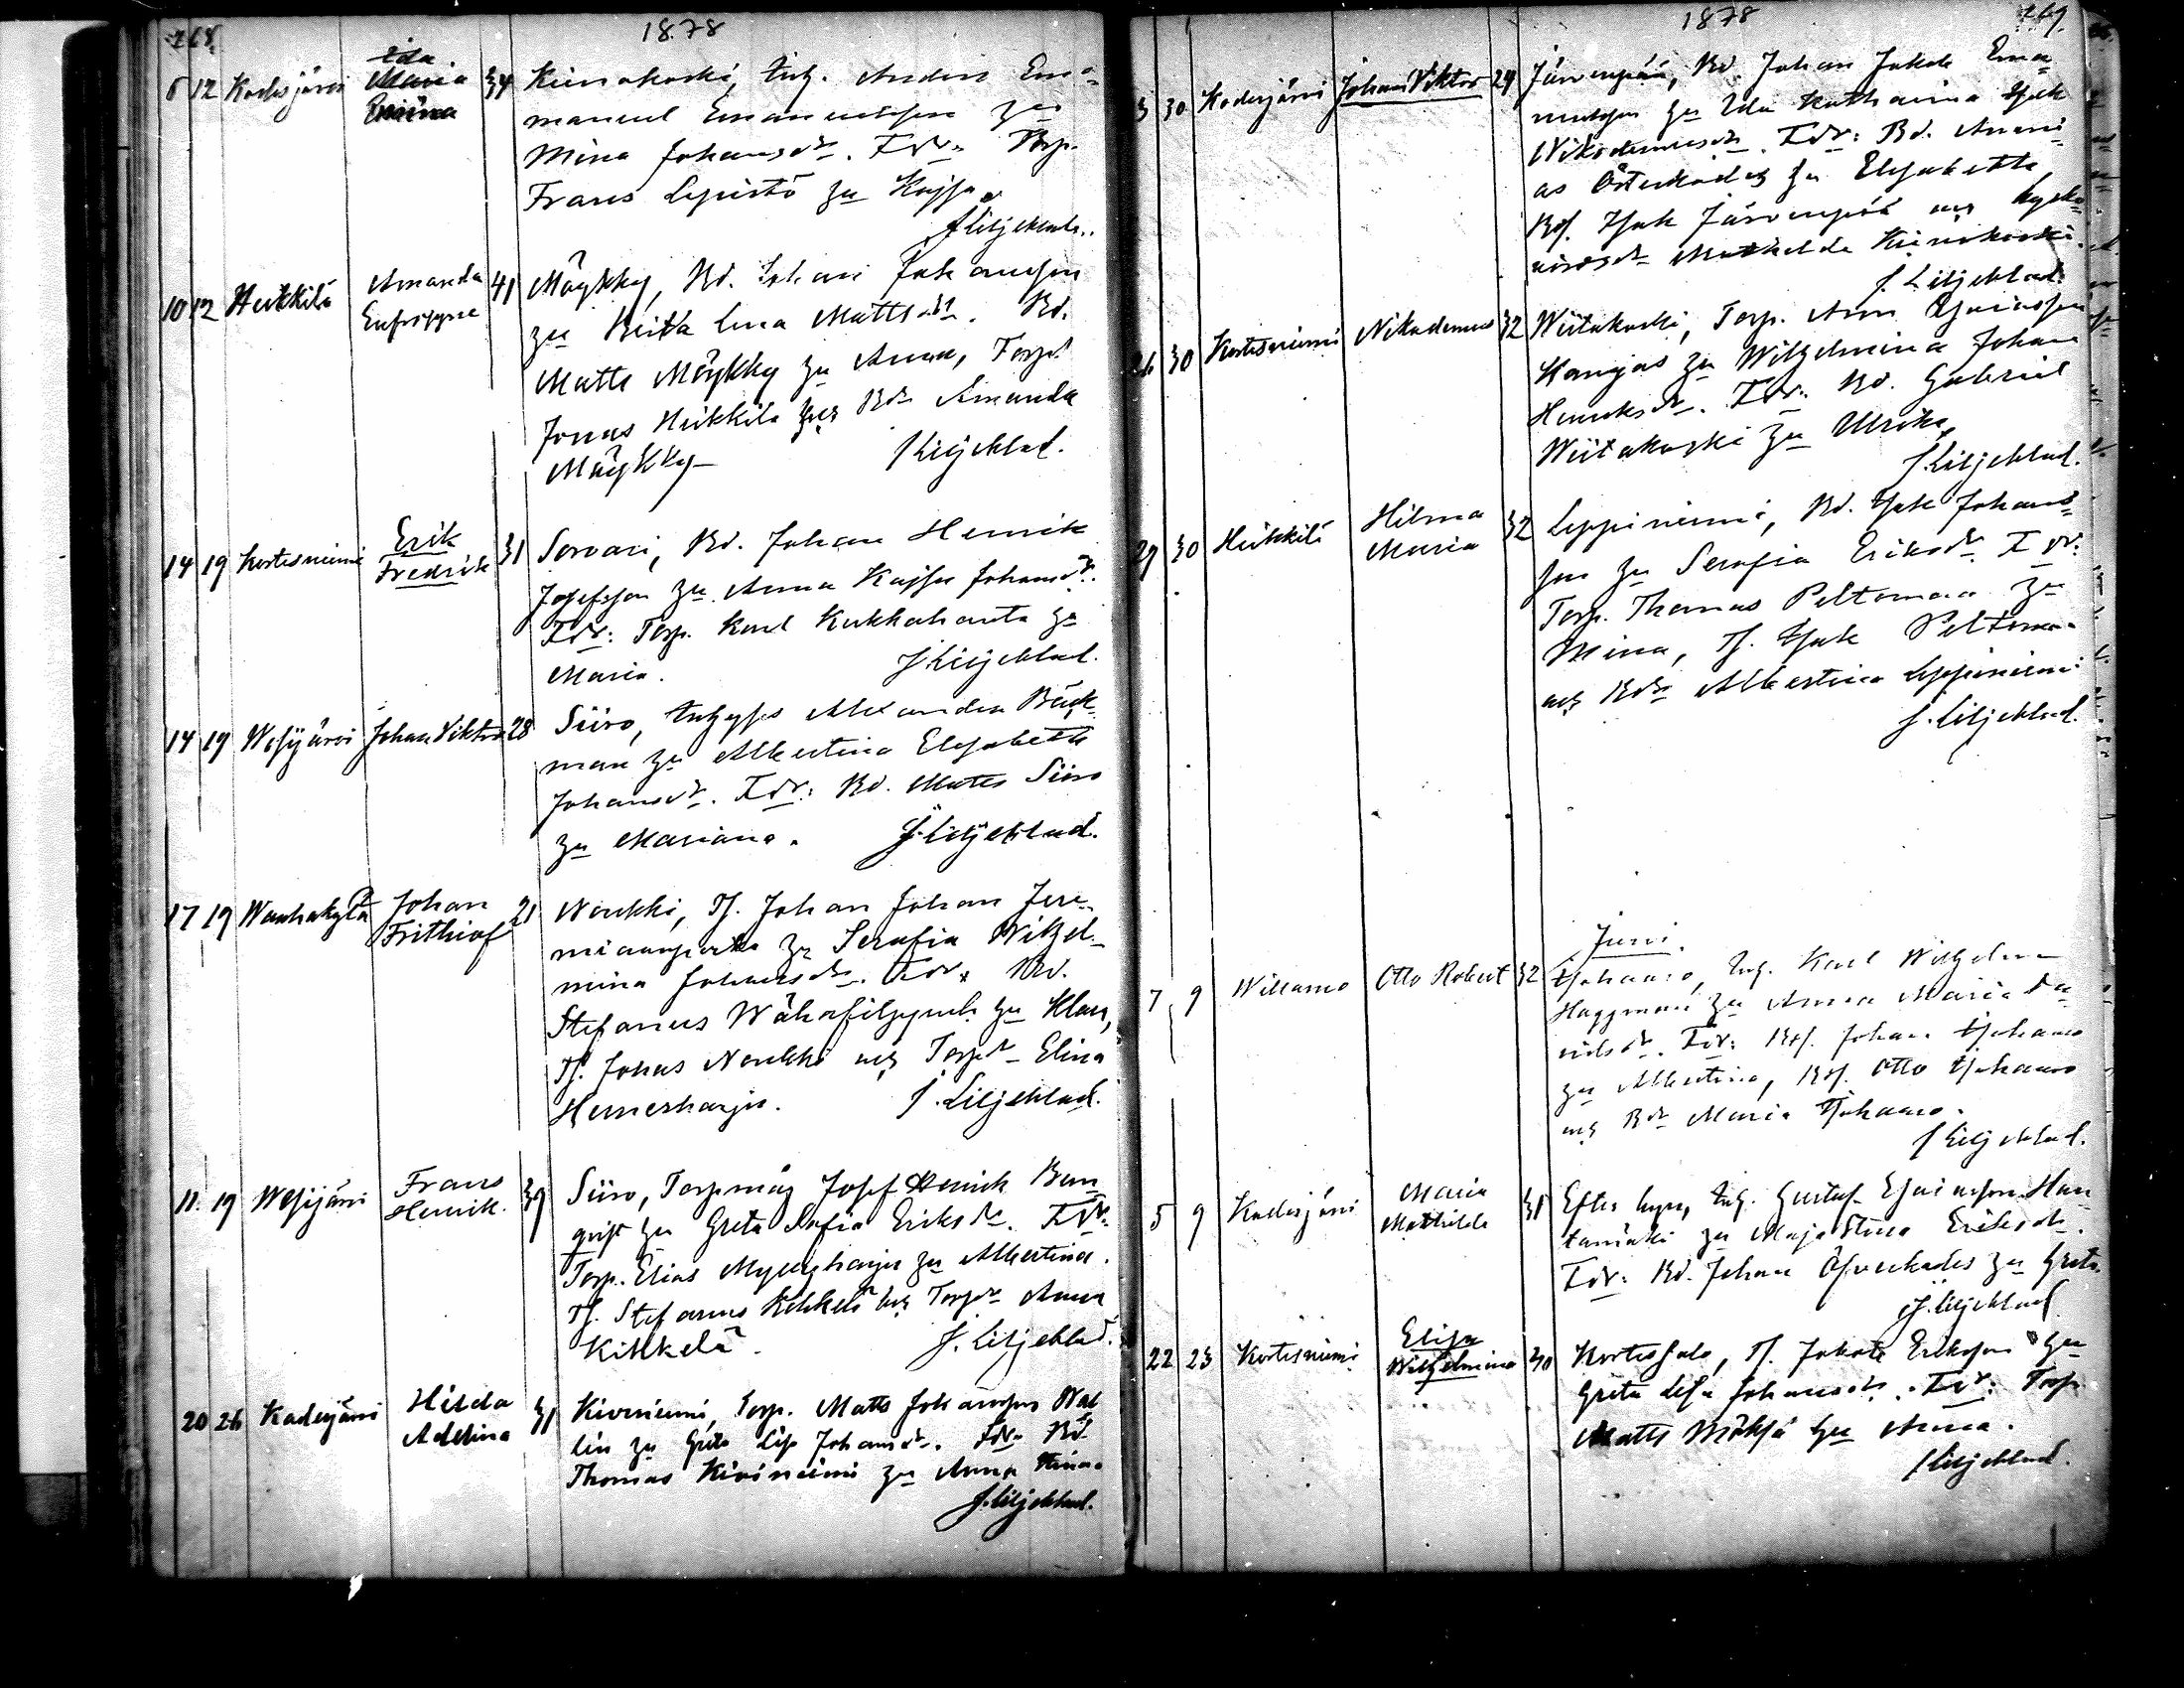 268.
1878
6 12 Kadesjärvi Ida Maria Emina 34 Kiinakoski, Inh. Anders Ema-
manuel Emanuelsson hu
Mina Johansdr. Fdr: Torp.
Frans Lepistö hu Kajsa.
J Liljeblad.
10 12 Heikkilä Amanda Eufrosyne 41 Mäykky, Bd. Johan Johansson
hu Brita Lena Mattsdr. Bd.
Matts Mäykky hu Anna, Torps.
Jonas Heikkilä och Bdr Amanda
Mäykky
J Liljeblad.
14 19 Kortesniemi Erik Fredrik 31 Sorvari, Bd. Johan Henrik
Josefsson hu Anna Kajsa Johansdr.
Fdr: Torp. Karl Kukkahauta hu
Maria. J Liljeblad.
14 19 Wesijärvi Johan Viktor 28 Siiro, Inhyses Alexander Bäck-
man hu Albertina Elisabeth
Johansdr. Fdr: Bd. Matts Siiro
hu Mariana. J. Liljeblad.
17 19 Wanhakylä Johan Frithiof 21 Noukki, Ts. Johan Johan Jere-
hu Serafia Wilhel-
mina Johansdr. Fdr. Bd.
Stefanus hu Klara,
Ts. Johas Noukki och Torpdr Elina
Hernesharju. J. Liljeblad.
11. 19 Wesijärvi Frans Henrik. 39 Siiro, Torpmåg Josef Henrik Ben-
qvist hu Greta Sofia Eriksdr. Fdr:
Torp. Elias Myllyharju hu Albertina.
Ts. Stefanus Kikkelä och Torpdr Anna
Kikkelä. J. Liljeblad.
20 26 Kadesjärvi Hilda Adelina 31 Kiviniemi, Torp. Matts Johansson Wal-
lin hu Greta Lisa Johansdr. Fdr: Bd.
Thomas Kiviniemi hu Anna Stina.
J. Liljeblad.
1878
269.
5 30 Kadesjärvi Johan Viktor 29 Järvenpää, Bd. Johan Jakob Ema-
nuelsson hu Ida Katharina Isak
Nikodemusdr. Fdr: Bd. Anani-
as Österkades hu Elisabetha,
Bs. Isak Järvenpää och
Mathilda Kiinakoski.
J. Liljeblad.
26 30 Kortesniemi Nikodemus 32 Wiitakoski, Torp. Ann
Kangas hu Wilhelmina Johan
Henriksdr. Fdr: Bd. Gabriel
Wiitakoski hu Ulrika,
J. Liljeblad.
29 30 Heikkilä Hilma Maria 32 Leppiniemi, Bd. Isak Johans-
son hu Serafia Eriksdr. Fdr:
Torp. Thomas Peltomaa hu
Mina, Ts. Isak Peltomaa
och Bdr Albertina Leppiniemi
J. Liljeblad.
Juni.
7 9 Willamo Otto Robert 32 Isohanno, Inh. Karl Wilhelm
Haggman hu Anna Maria Da-
vidsdr. Fdr: Bs. Johan Isohanno
hu Albertina, Bs. Otto Isohanno
och Bdr Maria Isohanno.
J Liljeblad.
5 9 Kadesjärvi Maria Mathilda 31 Efter Inh. Gustaf Esaiasson Han-
tamäki hu Maja Stina Eriksdr.
Fdr: Bd. Johan Öfverkades hu Greta.
J. Liljeblad
22 23 Kortesniemi Elisa Wilhelmina 30 Kortessalo, Ts. Jakob Eriksson hu
Greta Lisa Johansdr. Fdr: Torp.
Matts Möksä hu Anna.
J Liljeblad.